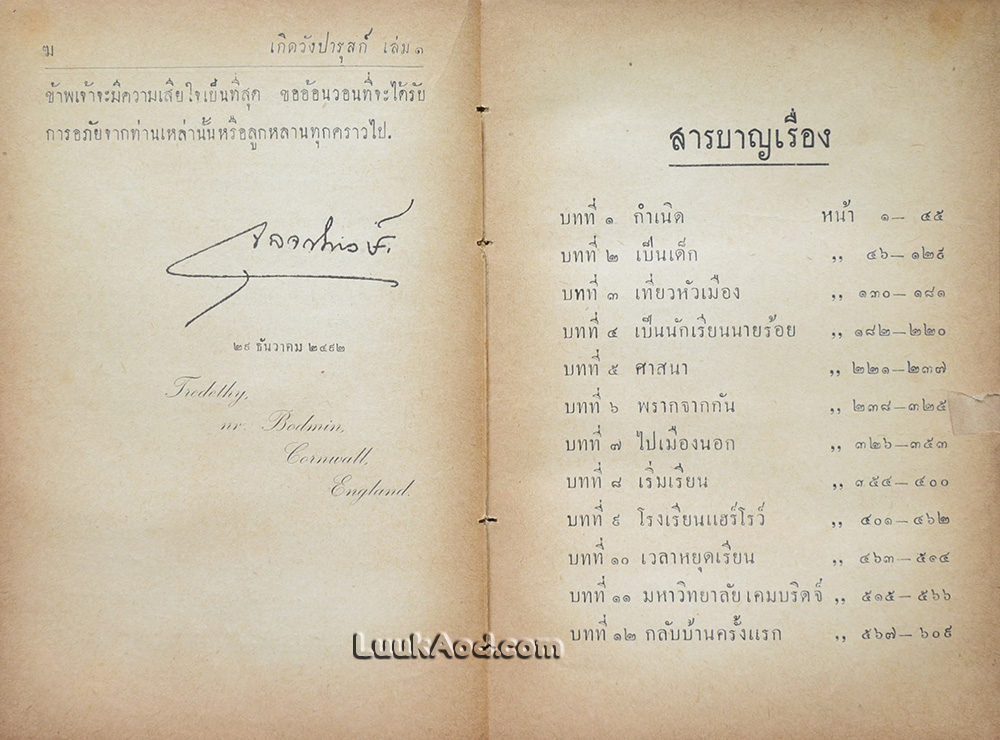 ฆ เกิดวังปารุสก์ เล่ม ๑
ข้าพเจ้าจะมีความเสียใจเป็นที่สุด ขออ้อนวอนที่จะได้รับ
การอภัยจากท่านเหล่านั้นหรือลูกหลานทุกคราวไป.
จุลจักรพงษ์.
๒๙ ธันวาคม ๒๔๙๒
Tredethy,
nr. Bodmin,
Cornwall,
England.
สารบาญเรื่อง
บทที่ ๑ กำเนิด หน้า ๑— ๔๕
บทที่ ๒ เป็นเด็ก ,, ๔๖—๑๒๙
บทที่ ๓ เที่ยวหัวเมือง ,, ๑๓๐—๑๘๑
บทที่ ๔ เป็นนักเรียนนายร้อย ,, ๑๘๒—๒๒๐
บทที่ ๕ ศาสนา ,, ๒๒๑—๒๓๗
บทที่ ๖ พรากจากกัน ,, ๒๓๘—๓๒๕
บทที่ ๗ ไปเมืองนอก ,, ๓๒๖—๓๕๓
บทที่ ๘ เริ่มเรียน ,, ๓๕๔—๔๐๐
บทที่ ๙ โรงเรียนแฮร์โรว์ ,, ๔๐๑—๔๖๒
บทที่ ๑๐ เวลาหยุดเรียน ,, ๔๖๓—๕๑๔
บทที่ ๑๑ มหาวิทยาลัยเคมบริดจ์ ,, ๕๑๕—๕๖๖
บทที่ ๑๒ กลับบ้านครั้งแรก ,, ๕๖๗—๖๐๙
LuukAod.com